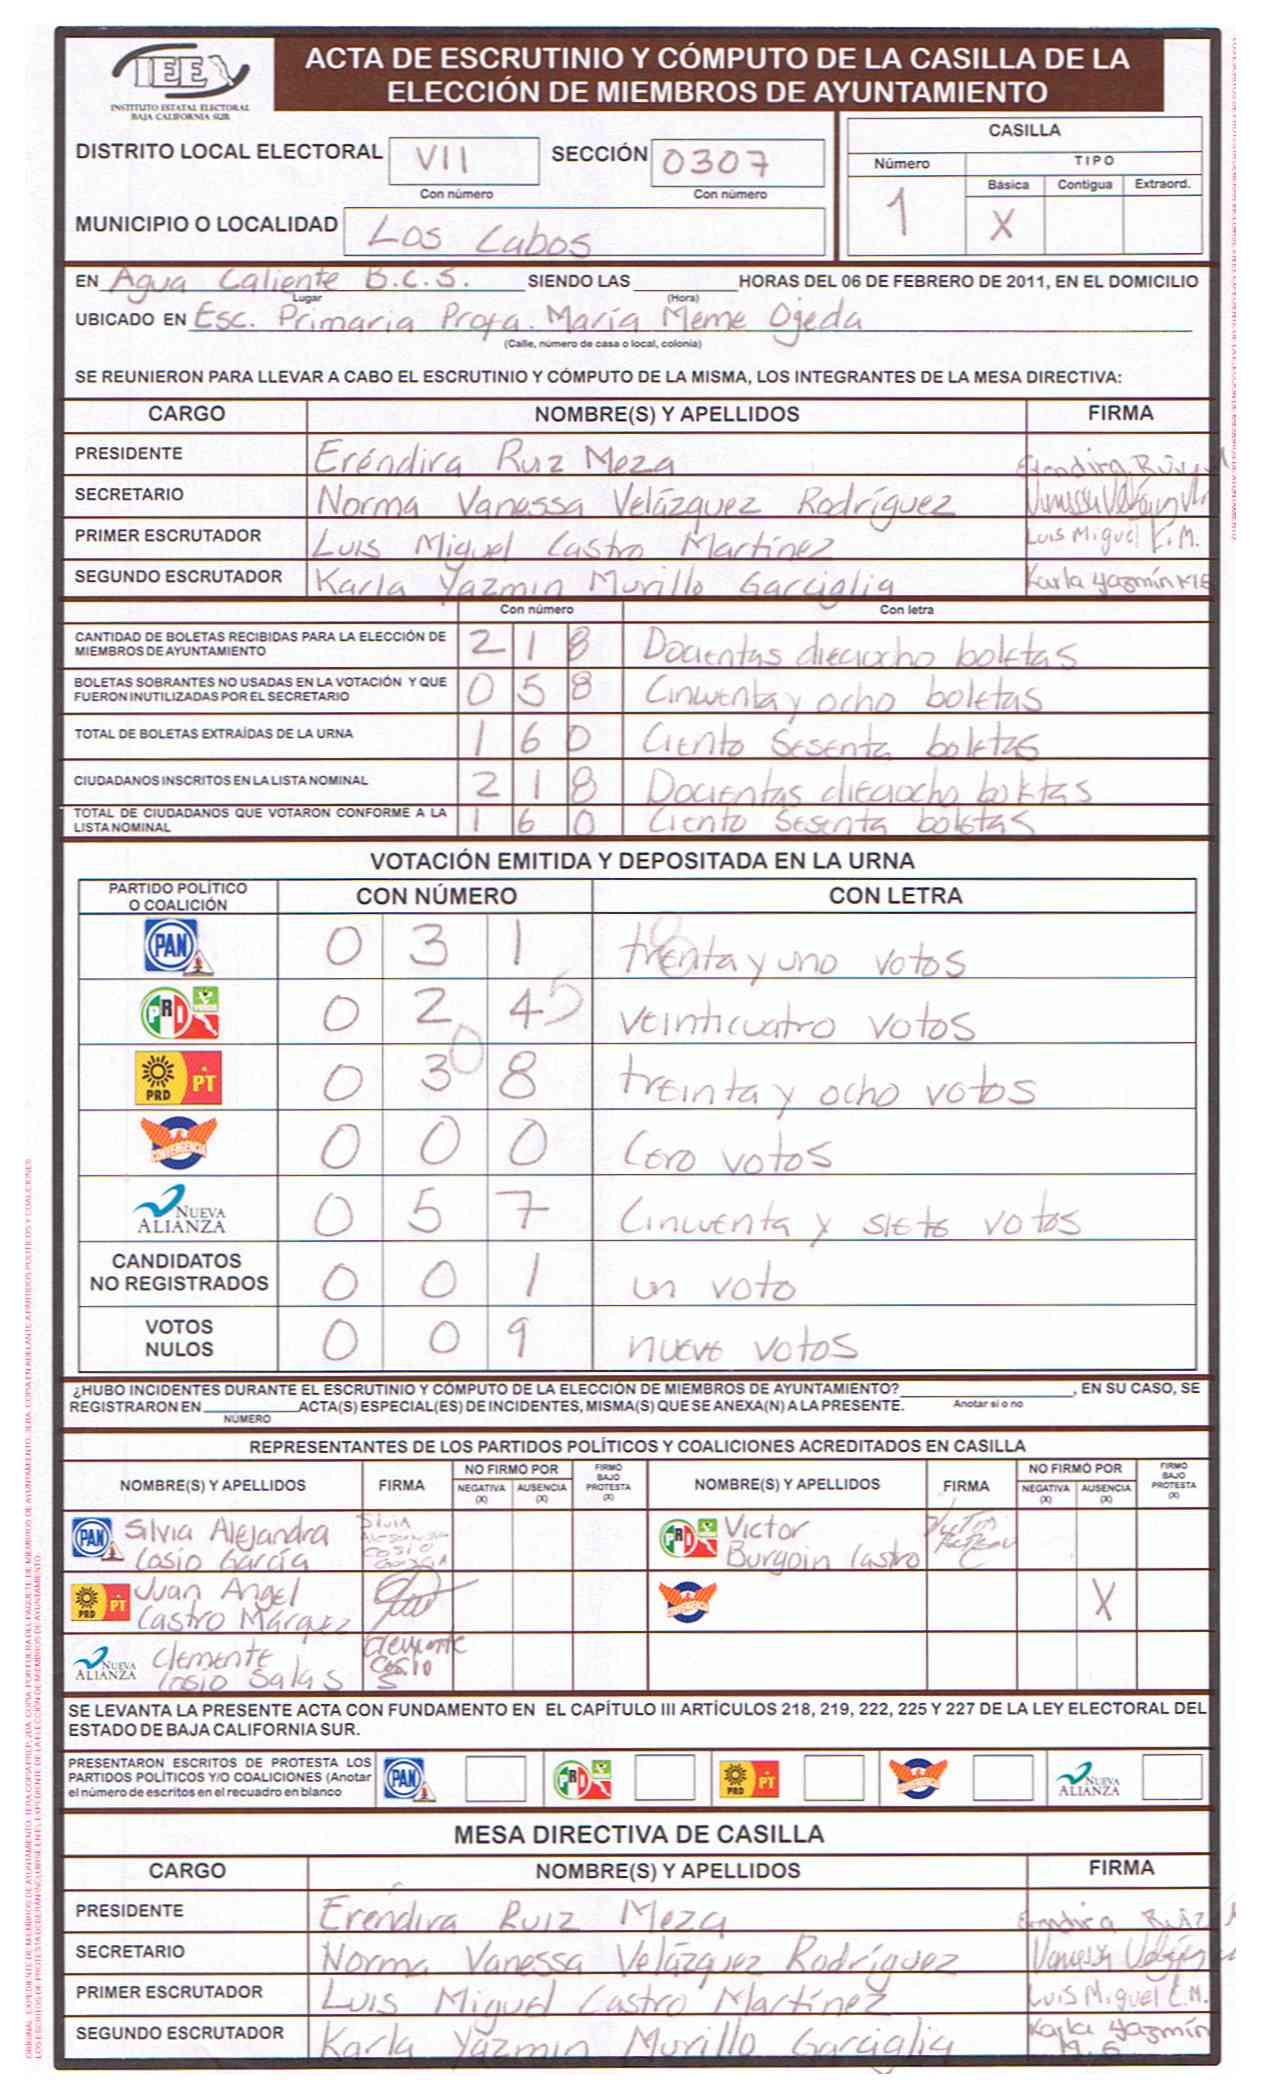 IEE
INSTITUTO ESTATAL ELECTORAL
BAJA CALIFORNIA SUR
ACTA DE ESCRUTINIO Y CÓMPUTO DE LA CASILLA DE LA
ELECCIÓN DE MIEMBROS DE AYUNTAMIENTO
DISTRITO LOCAL ELECTORAL VII SECCIÓN 0307
Con número Con número
MUNICIPIO O LOCALIDAD Los Cabos
CASILLA
Número TIPO
Básica Contigua Extraord.
1 X
EN Agua Caliente B.C.S. SIENDO LAS HORAS DEL 06 DE FEBRERO DE 2011, EN EL DOMICILIO
Lugar (Hora)
UBICADO EN Esc. Primaria Profa. María Meme Ojeda
(Calle, número de casa o local, colonia)
SE REUNIERON PARA LLEVAR A CABO EL ESCRUTINIO Y CÓMPUTO DE LA MISMA, LOS INTEGRANTES DE LA MESA DIRECTIVA:
CARGO NOMBRE(S) Y APELLIDOS FIRMA
PRESIDENTE Eréndira Ruiz Meza Erendira Ruiz
SECRETARIO Norma Vanessa Velázquez Rodríguez
PRIMER ESCRUTADOR Luis Miguel Castro Martínez Luis Miguel C.M.
SEGUNDO ESCRUTADOR Karla Yazmin Murillo Garciglia Karla Yazmín
Con número Con letra
CANTIDAD DE BOLETAS RECIBIDAS PARA LA ELECCIÓN DE
MIEMBROS DE AYUNTAMIENTO 2 1 8 Docientas dieciocho boletas
BOLETAS SOBRANTES NO USADAS EN LA VOTACIÓN Y QUE
FUERON INUTILIZADAS POR EL SECRETARIO 0 5 8 Cincuenta y ocho boletas
TOTAL DE BOLETAS EXTRAÍDAS DE LA URNA 1 6 0 Ciento sesenta boletas
CIUDADANOS INSCRITOS EN LA LISTA NOMINAL 2 1 8 Docientas dieciocho boletas
TOTAL DE CIUDADANOS QUE VOTARON CONFORME A LA
LISTA NOMINAL 1 6 0 Ciento sesenta boletas
VOTACIÓN EMITIDA Y DEPOSITADA EN LA URNA
PARTIDO POLÍTICO
O COALICIÓN CON NÚMERO CON LETRA
PAN 0 3 1 trenta y uno votos
PRI 0 2 4 veinticuatro votos
PRD PT 0 3 8 treinta y ocho votos
CONVERGENCIA 0 0 0 Cero votos
NUEVA
ALIANZA 0 5 7 Cincuenta y siete votos
CANDIDATOS
NO REGISTRADOS 0 0 1 un voto
VOTOS
NULOS 0 0 9 nueve votos
¿HUBO INCIDENTES DURANTE EL ESCRUTINIO Y CÓMPUTO DE LA ELECCIÓN DE MIEMBROS DE AYUNTAMIENTO? , EN SU CASO, SE
REGISTRARON EN ACTA(S) ESPECIAL(ES) DE INCIDENTES, MISMA(S) QUE SE ANEXA(N) A LA PRESENTE. Anotar si o no
NÚMERO
REPRESENTANTES DE LOS PARTIDOS POLÍTICOS Y COALICIONES ACREDITADOS EN CASILLA
NOMBRE(S) Y APELLIDOS FIRMA NO FIRMÓ POR NEGATIVA (X) AUSENCIA (X) FIRMÓ BAJO PROTESTA (X) NOMBRE(S) Y APELLIDOS FIRMA NO FIRMÓ POR NEGATIVA (X) AUSENCIA (X) FIRMÓ BAJO PROTESTA (X)
PAN Silvia Alejandra PRI Victor
Cosio García Burgoin Castro
PRD PT Juan Angel X
Castro Márquez
NUEVA
ALIANZA Clemente Clemente
Cosio Salas Cosio S
SE LEVANTA LA PRESENTE ACTA CON FUNDAMENTO EN EL CAPÍTULO III ARTÍCULOS 218, 219, 222, 225 Y 227 DE LA LEY ELECTORAL DEL
ESTADO DE BAJA CALIFORNIA SUR.
PRESENTARON ESCRITOS DE PROTESTA LOS
PARTIDOS POLÍTICOS Y/O COALICIONES (Anotar
el número de escritos en el recuadro en blanco PAN PRI PRD PT NUEVA ALIANZA
MESA DIRECTIVA DE CASILLA
CARGO NOMBRE(S) Y APELLIDOS FIRMA
PRESIDENTE Eréndira Ruiz Meza Erendira Ruiz
SECRETARIO Norma Vanessa Velázquez Rodríguez
PRIMER ESCRUTADOR Luis Miguel Castro Martínez Luis Miguel C.M.
SEGUNDO ESCRUTADOR Karla Yazmin Murillo Garciglia Karla Yazmín
M. G